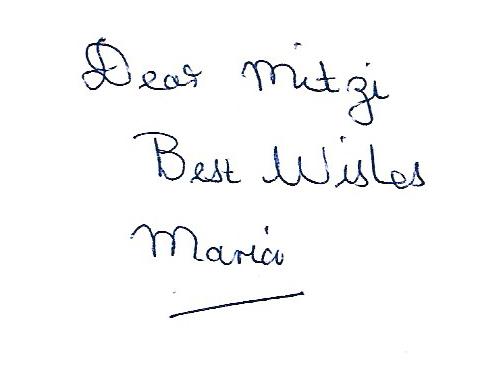 Dear Mitzi
Best Wishes
Maria